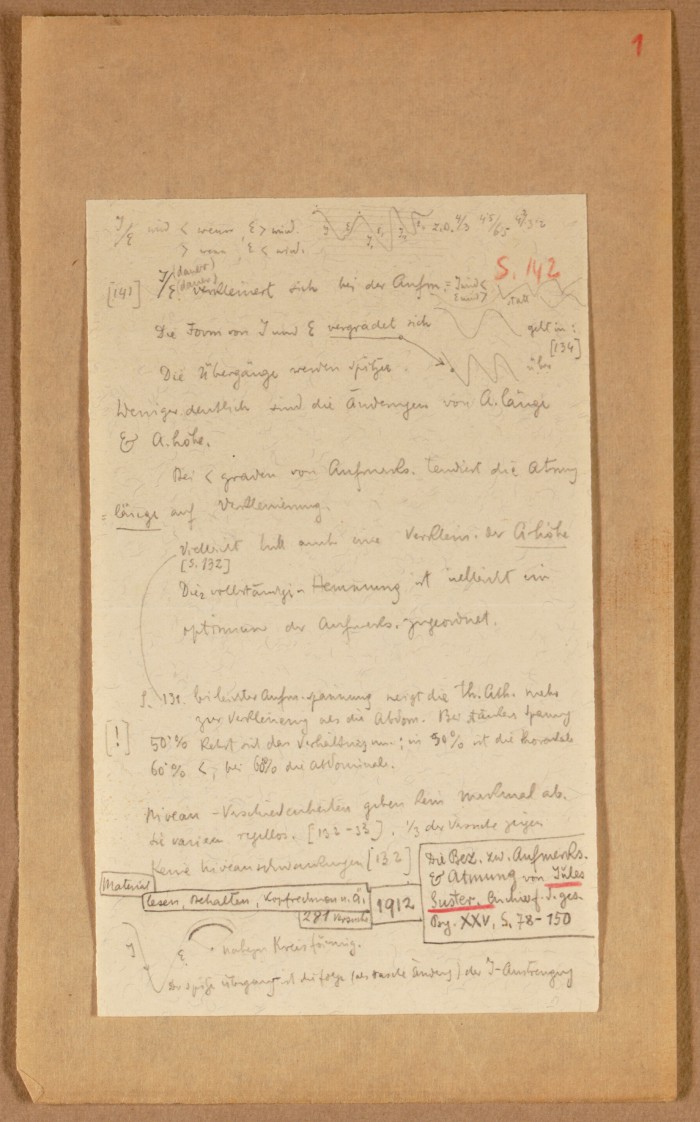 1
J/E wird < wenn E > wird.
> wenn E < wird.
S. 142
[141] J/E (dauer) (dauer) verkleinert sich bei der Aufm. = J wird < E wird >
statt
Die Form von J und E vergradet sich geht in:
[134]
Die Übergänge werden spitzer. über
Weniger deutlich sind die Änderungen von A. länge
& A. höhe.
Bei < graden von Aufmerks. tendiert die Atmung
= länge auf Verkleinerung.
Vielleicht tritt auch eine Verklein. der A-höhe
[S. 132]
Die vollständige Hemmung ist vielleicht ein
optimum der Aufmerks. zugeordnet.
S. 131. bei leichter Aufm. spannung neigt die Th. Ath. mehr
zur Verkleinerung als die Abdom. Bei starker Spannung
[!] 50% kehrt sich das Verhältnis um; in 50% ist die thorakale
60% <, bei 68% die Abdominale.
Niveau-Verschiedenheiten geben kein Merkmal ab.
Sie variieren regellos. [132-33]. 1/3 der Versuche zeigen
Keine Niveauschwankungen [132]
Die Bez. zw. Aufmerks.
& Atmung von Jules
Suster, Archiv f. d. ges.
Psy. XXV, S. 78-150
Material
lesen, behalten, Kopfrechnen u. Ä.
281 Versuche
1912
J E nahezu Kreisförmig.
Der spitze Übergang ist die folge (als rasche Änderung) der J-Anstrengung